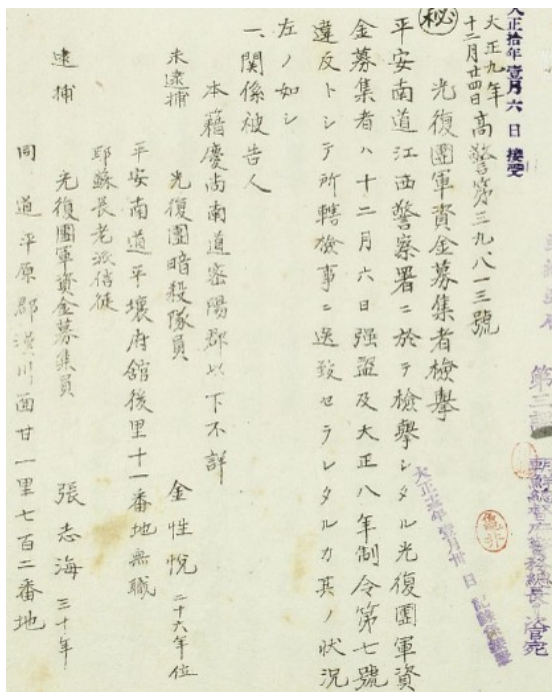 大正拾年壹月六日接受
大正九年
十二月廿四日
高警第三九八一三號
秘
光復團軍資金募集者檢擧
平安南道江西警察署ニ於テ檢擧シタル光復團軍資
金募集者ハ十二月六日强盜及大正八年制令第七號
違反トシテ所轄檢事ニ送致セラレタルカ其ノ狀況
左ノ如シ
一、關係被告人
本籍慶尙南道密陽郡以下不詳
未逮捕 光復團暗殺隊員 金性悅 二十六年位
平安南道平壤府舘後里十一番地無職
耶蘇長老派信徒
逮捕 光復團軍資金募集員 張志海 三十年
同道平原郡漢川面甘一里七百二番地
第三課
朝鮮總督府警務總長